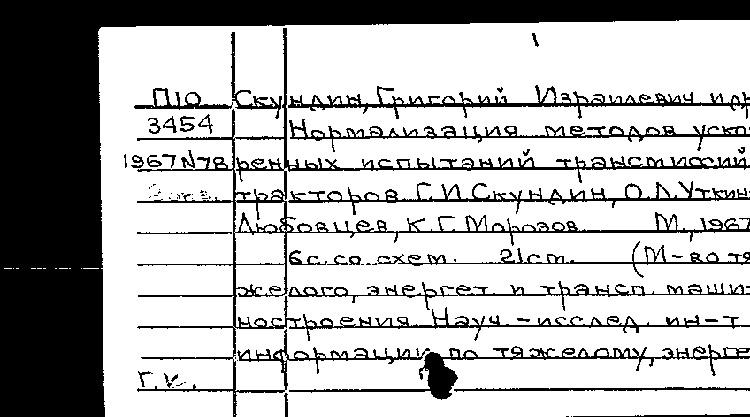 1
П10 Скундин, Григорий Израилевич и др
3454 Нормализация методов уско
1967 N78 ренных испытаний трансмиссий
тракторов. Г.И. Скундин, О.Л. Уткин
Любовцев, К.Г. Морозов М., 1967
6 с. со схем. 21 cm. (М-во тя
желого, энергет и трансп. маши
ностроения Науч.-исслед. ин-т
информации по тяжелому, энерге
Г.К.